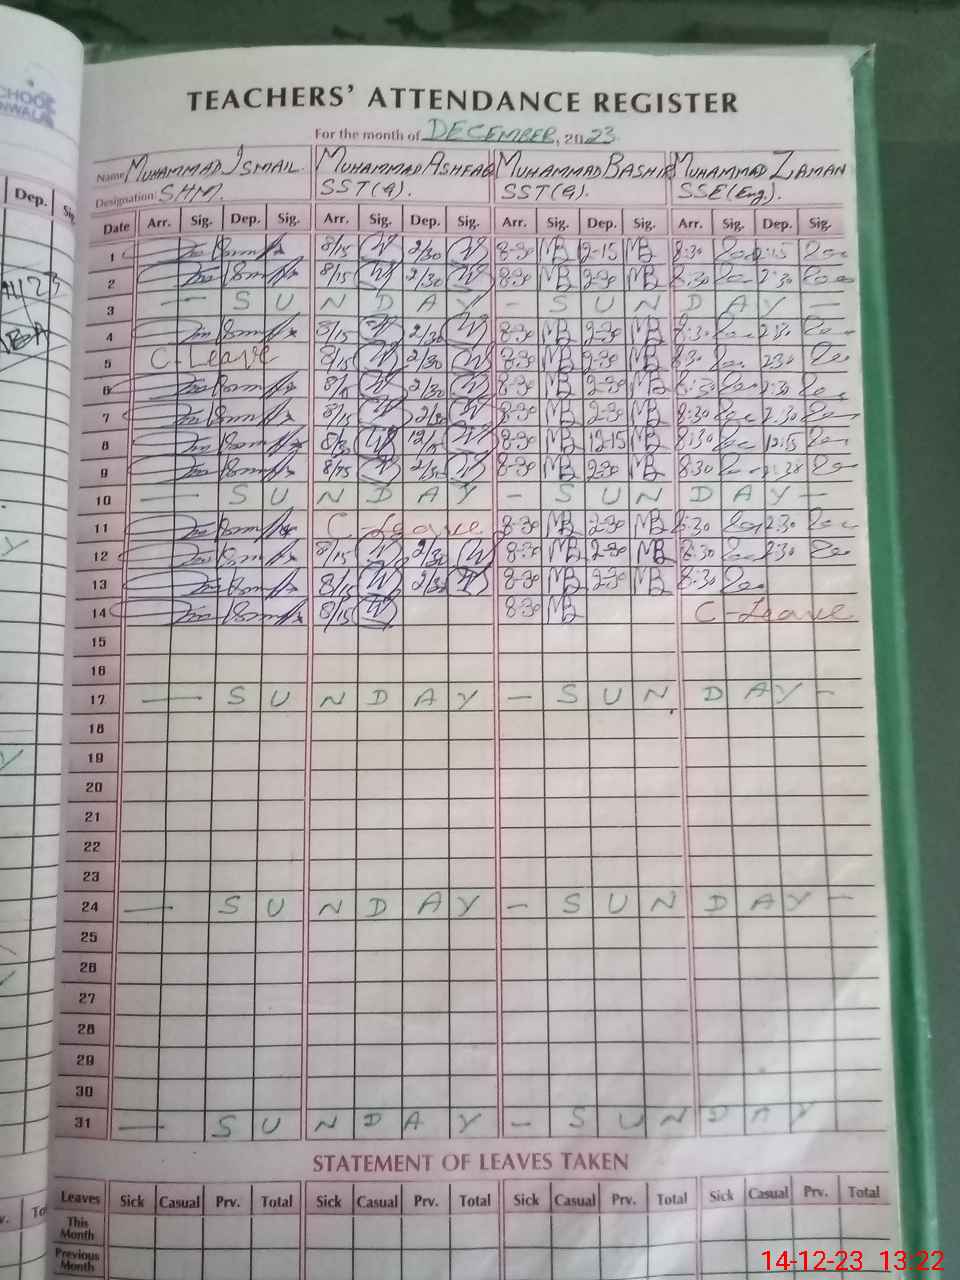 CHOOL
NWALA
TEACHERS' ATTENDANCE REGISTER
For the month of DECEMBER, 2023
Name MUHAMMAD ISMAIL MUHAMMAD ASHFAQ MUHAMMAD BASHIR MUHAMMAD ZAMAN
Designation: SHM. SST(G). SST(G). SSE(Eng).
Dep.
Date Arr. Sig. Dep. Sig. Arr. Sig. Dep. Sig. Arr. Sig. Dep. Sig. Arr. Sig. Dep. Sig.
1 8/15 2/30 8-30 MB 12-15 MB 8:30
2 8/15 2/30 8-30 MB 2-30 MB 8:30 2:30
3 — S U N D A Y - S U N D A Y -
4 8/15 2/30 8-30 MB 2-30 MB 8:30 2:30
5 C-Leave 8/15 2/30 8-30 MB 2-30 MB 8:30 2:30
6 2/30 8-30 MB 2-30 MB 8:30 2:30
7 8/15 2/30 8-30 MB 2-30 MB 8:30 2:30
8 8-30 MB 12-15 MB 8:30 12:15
9 8/15 2/30 8-30 MB 2-30 MB 8:30
10 — S U N D A Y - S U N D A Y -
11 C-Leave 8-30 MB 2-30 MB 8:30 2:30
12 8/15 2/30 8-30 MB 2-30 MB 8:30 2:30
13 8/15 2/30 8-30 MB 2-30 MB 8:30
14 8/15 8-30 MB C-Leave
15
16
17 — S U N D A Y - S U N D A Y -
18
19
20
21
22
23
24 — S U N D A Y - S U N D A Y -
25
26
27
28
29
30
31 — S U N D A Y - S U N D A Y
STATEMENT OF LEAVES TAKEN
Leaves Sick Casual Prv. Total Sick Casual Prv. Total Sick Casual Prv. Total Sick Casual Prv. Total
This
Month
Previous
Month
14-12-23 13:22